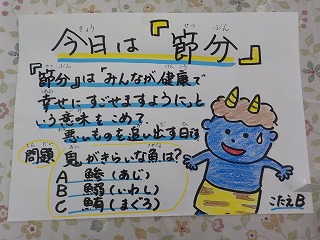 今日は『節分』
『節分』は『みんなが健康で
幸せにすごせますように。』と
いう意味をこめて、
悪いものを追い出す日
問題
鬼がきらいな魚は?
A 鯵(あじ)
B 鰯(いわし)
C 鮪(まぐろ)
こたえB